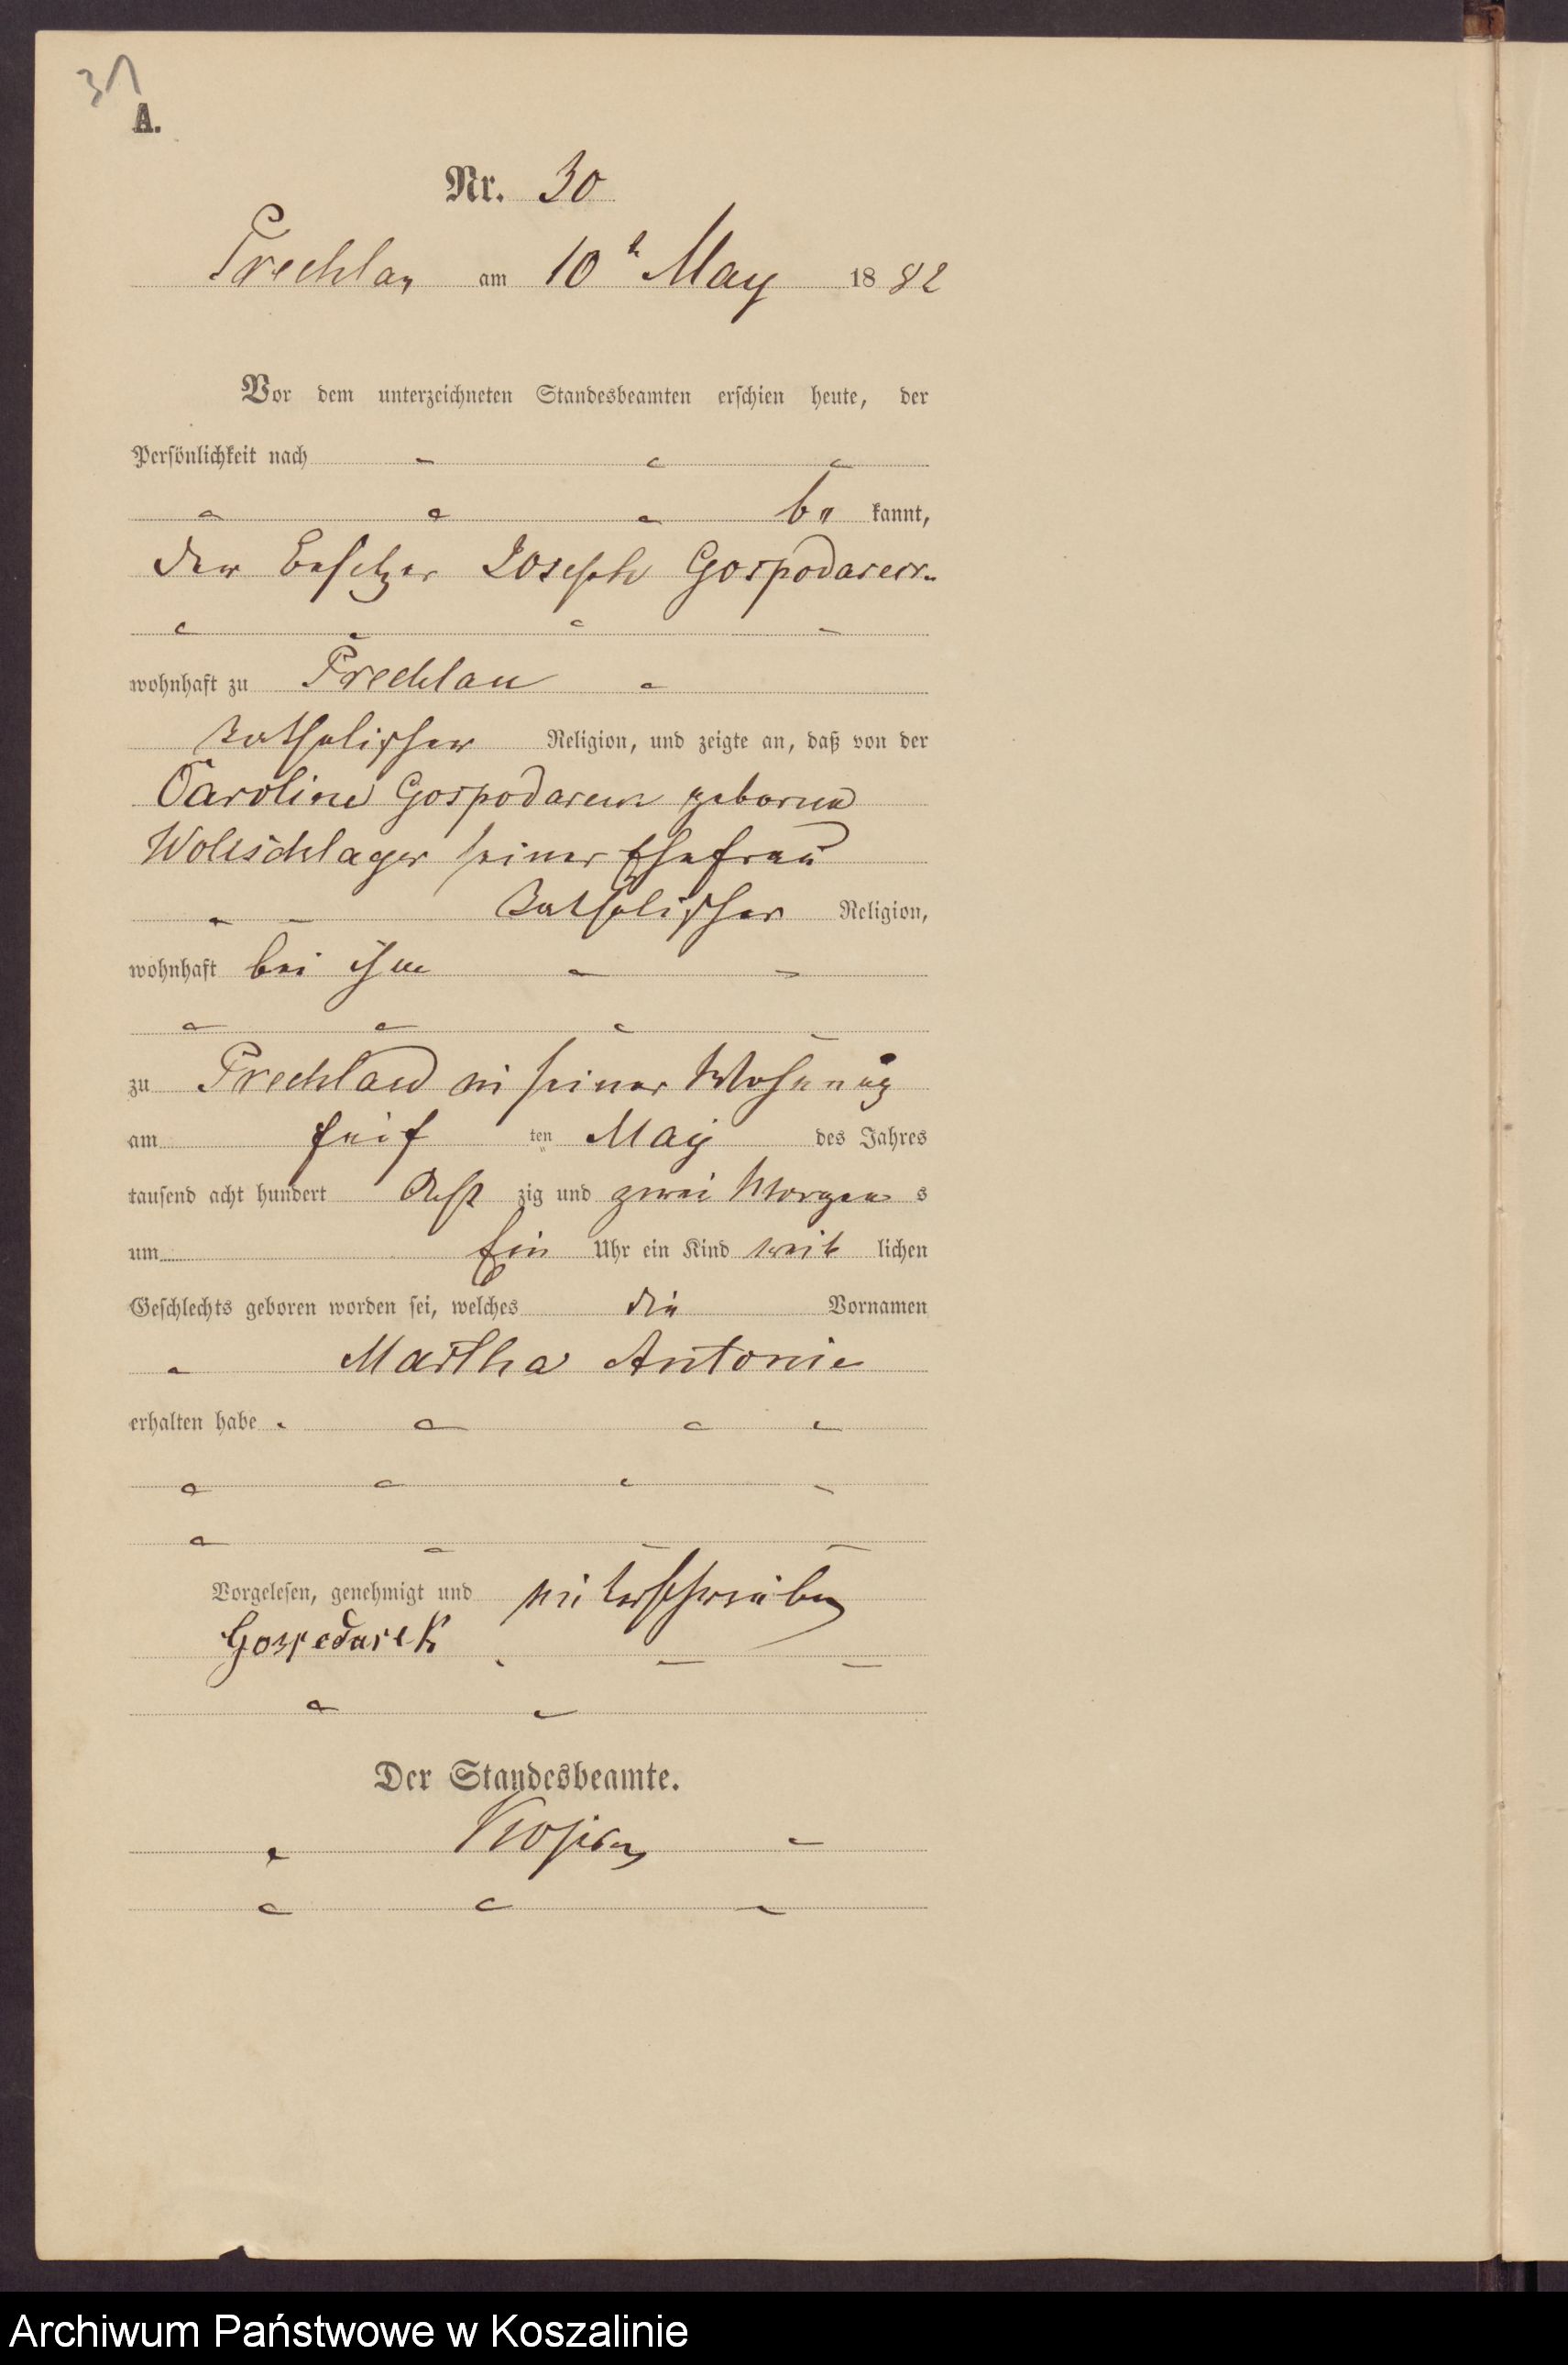 31
A.
Nr. 30
Prechlau am 10t May 1882
Vor dem unterzeichneten Standesbeamten erschien heute, der
Persönlichkeit nach
be kannt,
der Besitzer Joseph Gospodarek
wohnhaft zu Prechlau
katholischer Religion, und zeigte an, daß von der
Caroline Gospodarek geborene
Wollschlager seiner Ehefrau
katholischer Religion,
wohnhaft bei ihm
zu Prechlau in seiner Wohnung
am fünf ten May des Jahres
tausend acht hundert Acht zig und zwei Morgens
um Ein Uhr ein Kind weib lichen
Geschlechts geboren worden sei, welches die Vornamen
Martha Antonie
erhalten habe
Vorgelesen, genehmigt und unterschrieben
Gospodarek
Der Standesbeamte.
Archiwum Państwowe w Koszalinie